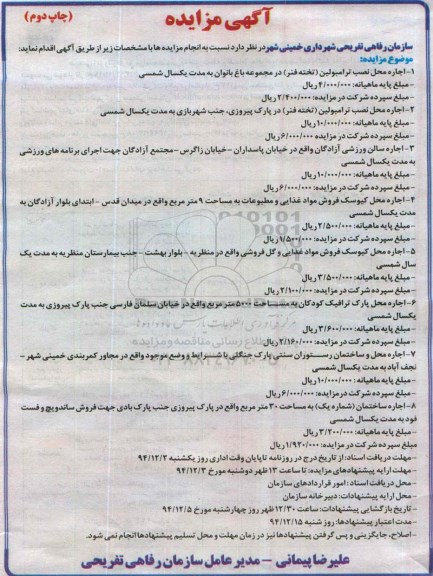 آگهی مزایده
(چاپ دوم)
سازمان رفاهی تفریحی شهرداری خمینی شهر در نظر دارد نسبت به انجام مزایده ها با مشخصات زیر از طریق آگهی اقدام نماید:
موضوع مزایده:
۱- اجاره محل نصب ترامبولین (تخته فنر) در مجموعه باغ بانوان به مدت یکسال شمسی
- مبلغ پایه ماهیانه: ۴/۰۰۰/۰۰۰ ریال
- مبلغ سپرده شرکت در مزایده: ۲/۴۰۰/۰۰۰ ریال
۲- اجاره محل نصب ترامبولین (تخته فنر) در پارک پیروزی، جنب شهربازی به مدت یکسال شمسی
- مبلغ پایه ماهیانه: ۱۰/۰۰۰/۰۰۰ ریال
- مبلغ سپرده شرکت در مزایده: ۶/۰۰۰/۰۰۰ ریال
۳- اجاره سالن ورزشی آزادگان واقع در خیابان پاسداران -خیابان زاگرس -مجتمع آزادگان جهت اجرای برنامه های ورزشی
به مدت یکسال شمسی
- مبلغ پایه ماهیانه: ۱۰/۰۰۰/۰۰۰ ریال
- مبلغ سپرده شرکت در مزایده: ۶/۰۰۰/۰۰۰ ریال
۴- اجاره محل کیوسک فروش مواد غذایی و مطبوعات به مساحت ۹ متر مربع واقع در میدان قدس - ابتدای بلوار آزادگان به
مدت یکسال شمسی
- مبلغ پایه ماهیانه: ۲/۵۰۰/۰۰۰ ریال
- مبلغ سپرده شرکت در مزایده: ۱/۵۰۰/۰۰۰ ریال
۵- اجاره محل کیوسک فروش مواد غذایی و گل فروشی واقع در منظریه - بلوار بهشت - جنب بیمارستان منظریه به مدت یک
سال شمسی
- مبلغ پایه ماهیانه: ۳/۵۰۰/۰۰۰ ریال
- مبلغ سپرده شرکت در مزایده: ۲/۱۰۰/۰۰۰ ریال
۶- اجاره محل پارک ترافیک کودکان به مساحت ۵۰۰۰ متر مربع واقع در خیابان سلمان فارسی جنب پارک پیروزی به مدت
یکسال شمسی
- مبلغ پایه ماهیانه: ۳/۶۰۰/۰۰۰ ریال
- مبلغ سپرده شرکت در مزایده: ۲/۱۶۰/۰۰۰ ریال
۷- اجاره محل و ساختمان رستوران سنتی پارک جنگلی با شرایط و وضع موجود واقع در مجاور کمربندی خمینی شهر -
نجف آباد به مدت یکسال شمسی
- مبلغ پایه ماهیانه: ۱۰/۰۰۰/۰۰۰ ریال
- مبلغ سپرده شرکت در مزایده: ۶/۰۰۰/۰۰۰ ریال
۸- اجاره ساختمان (شماره یک) به مساحت ۳۰ متر مربع واقع در پارک پیروزی جنب پارک بادی جهت فروش ساندویچ و فست
فود به مدت یکسال شمسی
- مبلغ پایه ماهیانه: ۳/۲۰۰/۰۰۰ ریال
مبلغ سپرده شرکت در مزایده: ۱/۹۲۰/۰۰۰ ریال
مهلت دریافت اسناد: از تاریخ درج در روزنامه تا پایان وقت اداری روز یکشنبه ۹۴/۱۲/۲
مهلت ارایه پیشنهادهای مزایده: تا ساعت ۱۳ ظهر دوشنبه مورخ ۹۴/۱۲/۳
محل دریافت اسناد: امور قراردادهای سازمان
- محل ارایه پیشنهادات: دبیرخانه سازمان
- تاریخ بازگشایی پیشنهادات: ساعت ۱۲/۳۰ ظهر روز چهارشنبه مورخ ۹۴/۱۲/۵
مدت اعتبار پیشنهادها: روز شنبه ۹۴/۱۲/۱۵
- اصلاح، جایگزینی و پس گرفتن پیشنهادها نیز در زمان مهلت و محل تسلیم پیشنهادها انجام نمی شود.
علیرضا پیمانی - مدیر عامل سازمان رفاهی تفریحی